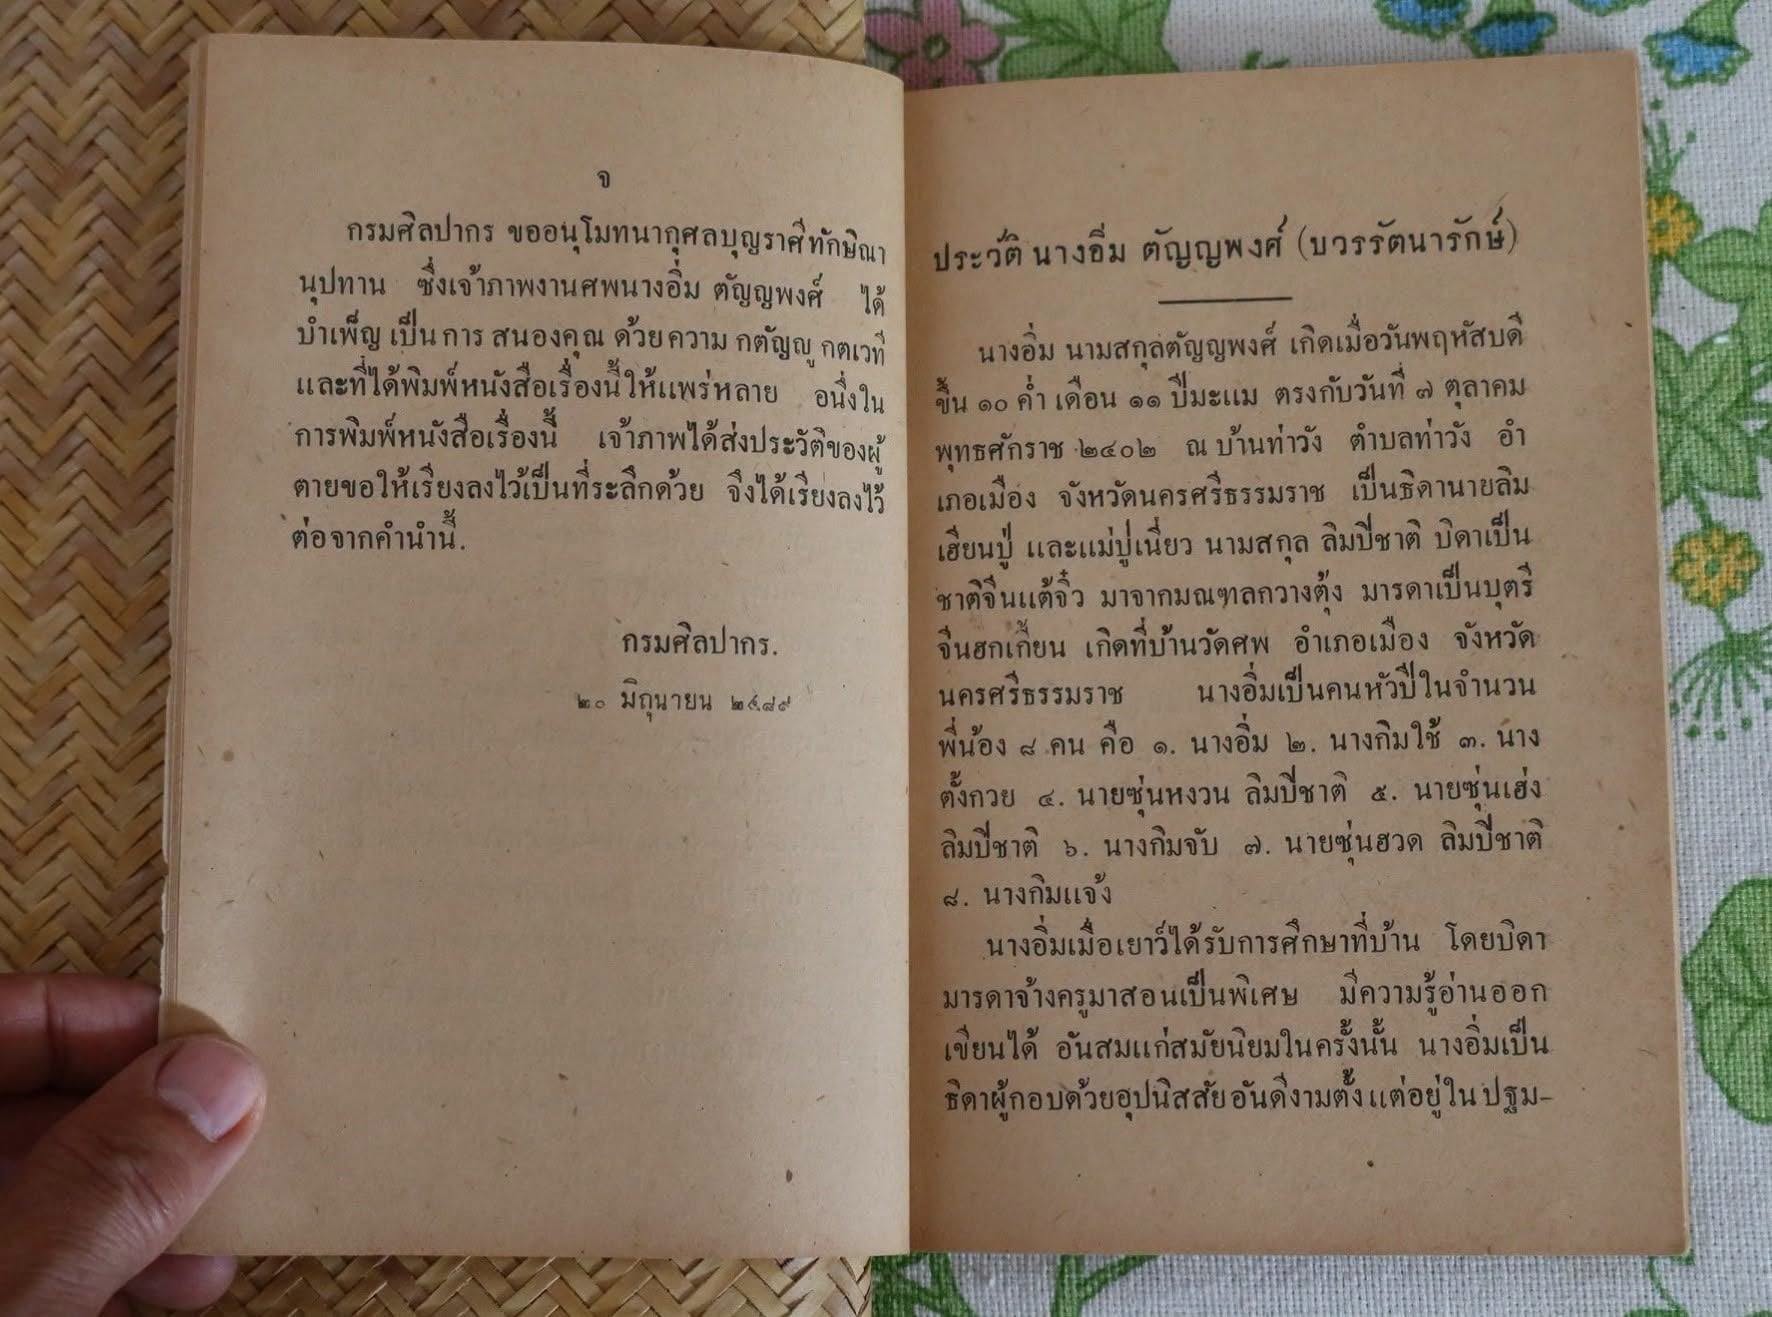 จ
กรมศิลปากร ขออนุโมทนากุศลบุญราศีทักษิณา
นุปทาน ซึ่งเจ้าภาพงานศพนางอิ่ม ตัญญพงศ์ ได้
บำเพ็ญ เป็น การ สนองคุณ ด้วย ความ กตัญญู กตเวที
และที่ได้พิมพ์หนังสือเรื่องนี้ให้แพร่หลาย อนึ่งใน
การพิมพ์หนังสือเรื่องนี้ เจ้าภาพได้ส่งประวัติของผู้
ตายขอให้เรียงลงไว้เป็นที่ระลึกด้วย จึงได้เรียงลงไว้
ต่อจากคำนำนี้.
กรมศิลปากร.
๒๐ มิถุนายน ๒๔๘๙
ประวัติ นางอิ่ม ตัญญพงศ์ (บวรรัตนารักษ์)
นางอิ่ม นามสกุลตัญญพงศ์ เกิดเมื่อวันพฤหัสบดี
ขึ้น ๑๐ ค่ำ เดือน ๑๑ ปีมะแม ตรงกับวันที่ ๗ ตุลาคม
พุทธศักราช ๒๔๐๒ ณ บ้านท่าวัง ตำบลท่าวัง อำ
เภอเมือง จังหวัดนครศรีธรรมราช เป็นธิดานายลิม
เฮียนปู่ และแม่ปู่เนี่ยว นามสกุล ลิมปิชาติ บิดาเป็น
ชาติจีนแต้จิ๋ว มาจากมณฑลกวางตุ้ง มารดาเป็นบุตรี
จีนฮกเกี้ยน เกิดที่บ้านวัดศพ อำเภอเมือง จังหวัด
นครศรีธรรมราช นางอิ่มเป็นคนหัวปีในจำนวน
พี่น้อง ๘ คน คือ ๑. นางอิ่ม ๒. นางกิมใช้ ๓. นาง
ตั้งกวย ๔. นายซุ่นหงวน ลิมปิชาติ ๕. นายซุ่นเฮ่ง
ลิมปิชาติ ๖. นางกิมจับ ๗. นายซุ่นฮวด ลิมปิชาติ
๘. นางกิมแจ้ง
นางอิ่มเมื่อเยาว์ได้รับการศึกษาที่บ้าน โดยบิดา
มารดาจ้างครูมาสอนเป็นพิเศษ มีความรู้อ่านออก
เขียนได้ อันสมแก่สมัยนิยมในครั้งนั้น นางอิ่มเป็น
ธิดาผู้กอบด้วยอุปนิสสัยอันดีงามตั้งแต่อยู่ใน ปฐม-